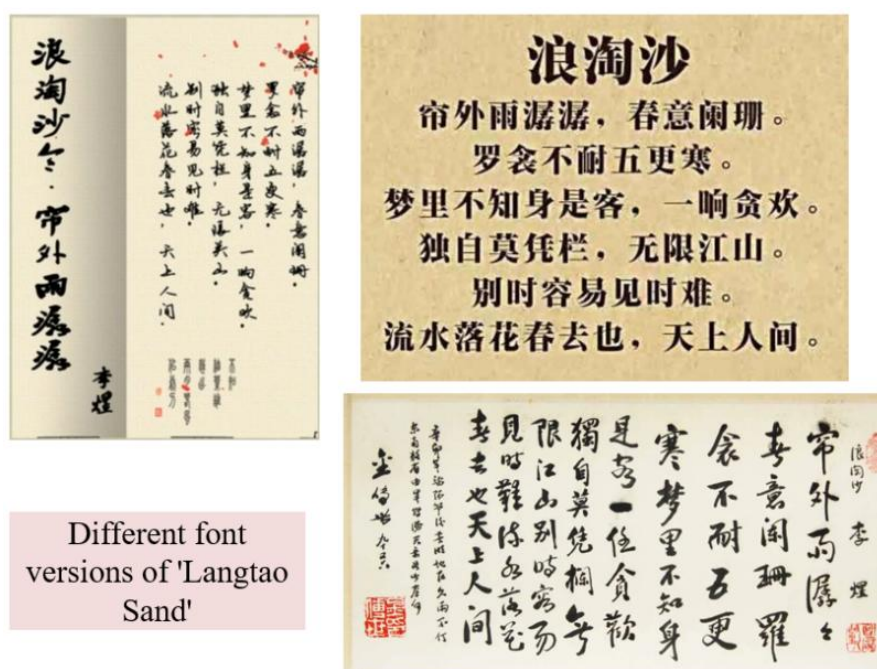 浪淘沙令·帘外雨潺潺
李煜
帘外雨潺潺，春意阑珊。
罗衾不耐五更寒。
梦里不知身是客，一晌贪欢。
独自莫凭栏，无限关山。
别时容易见时难。
流水落花春去也，天上人间。
浪淘沙
帘外雨潺潺，春意阑珊。
罗衾不耐五更寒。
梦里不知身是客，一响贪欢。
独自莫凭栏，无限江山。
别时容易见时难。
流水落花春去也，天上人间。
浪淘沙 李煜
帘外雨潺々
春意阑珊羅
衾不耐五更
寒梦里不知身
是客一任貪歡
獨自莫凭欄無
限江山別時容易
見時難流水落花
春去也天上人间
Different font
versions of 'Langtao
Sand'